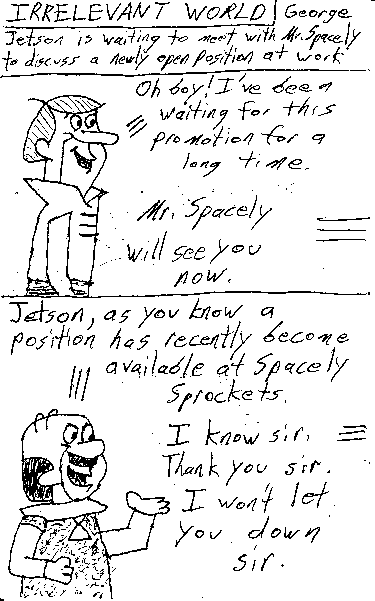 IRRELEVANT WORLD George
Jetson is waiting to meet with Mr. Spacely
to discuss a newly open position at work
Oh boy! I've been
waiting for this
promotion for a
long time.
Mr. Spacely
will see you
now.
Jetson, as you know a
position has recently become
available at Spacely
Sprockets.
I know sir.
Thank you sir.
I won't let
you down
sir.